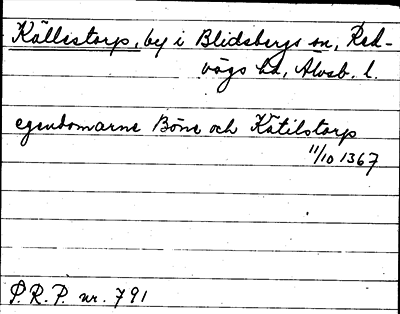 Källestorp, by i Blidsbergs sn, Red-
vägs hd, Älvsb. l.
egendomarne Böne och Kätilstorp
11/10 1367
P.R.P. nr. 791